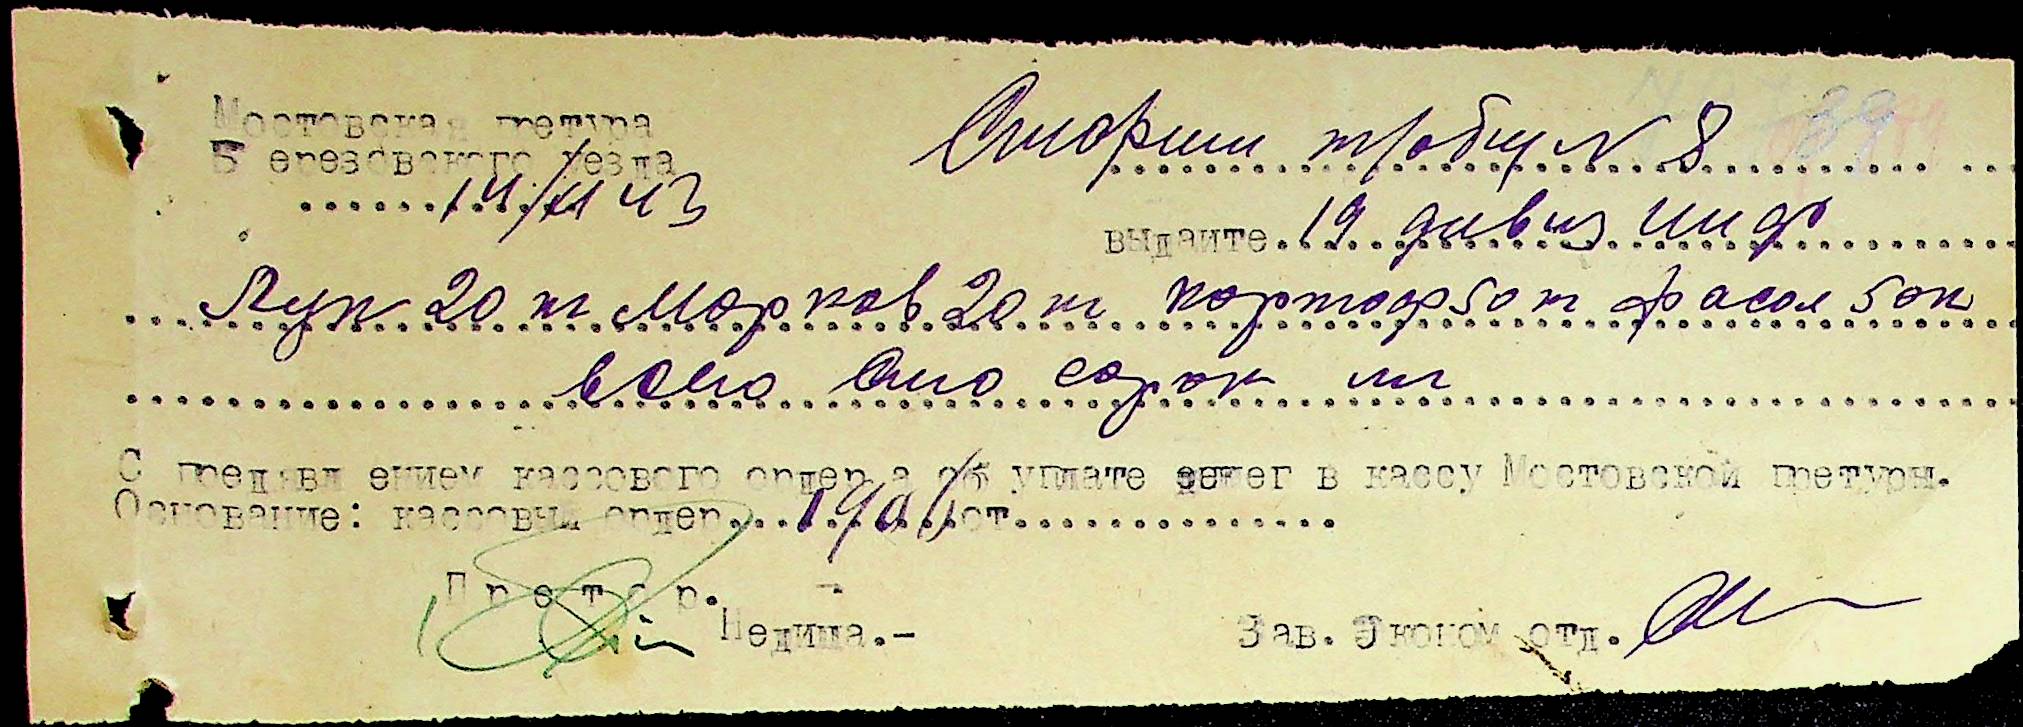 Мостовская претура
Березовского уезда
14/II 43
Старши трабщ N 8
39
выдаите 19 дивиз инф
Лук 20 кг Морков 20 кг картоф 50 к фасол 50к
всио сто сорок кг
С предявлением кассового ордера об уплате денег в кассу Мостовской претуры.
Основание: кассовый ордер от
Претор.
Недиша.-
Зав. Эконом отд.